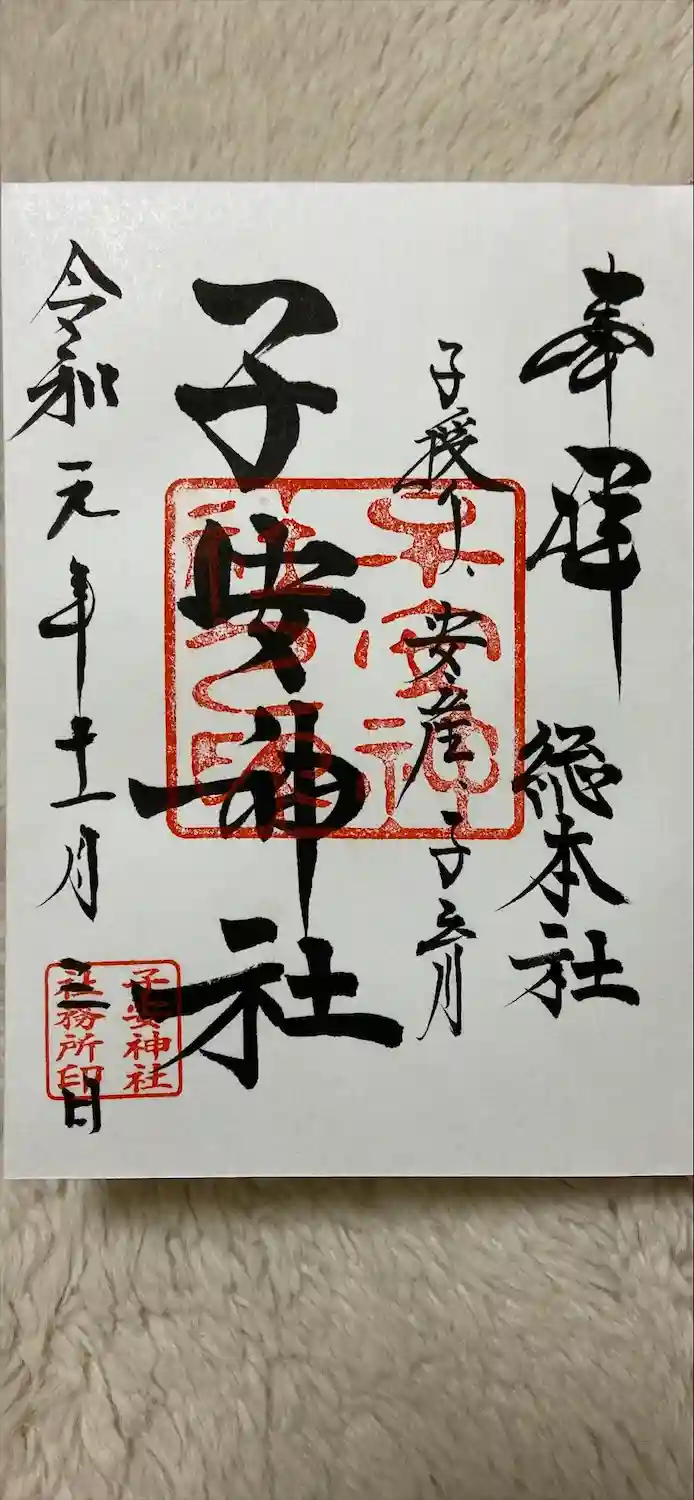 奉拝
総本社
子授け、安産、子育
子安神社
令和元年十一月三日
子安神社
社務所印